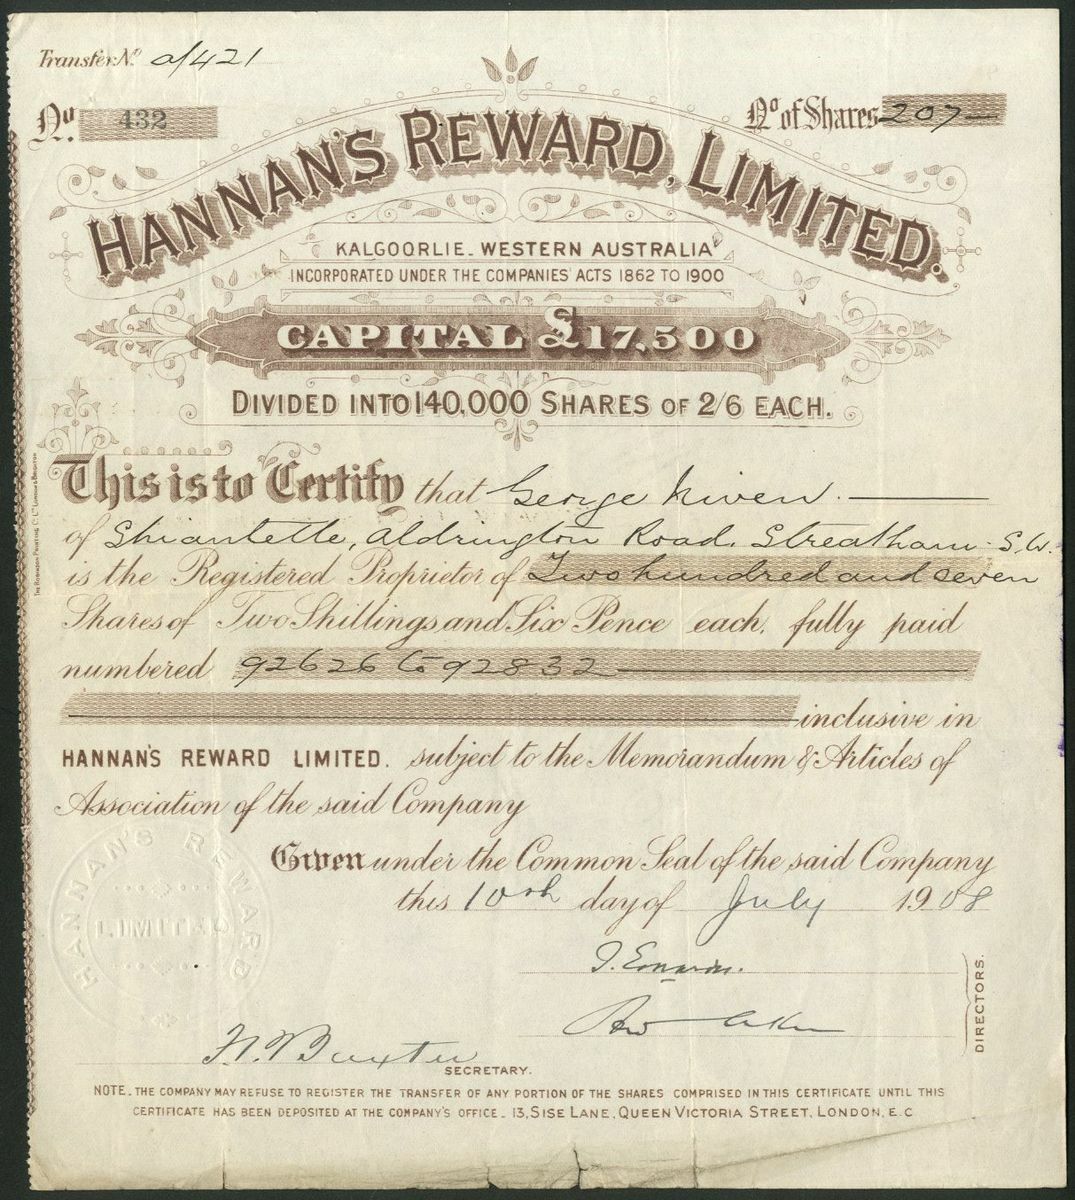 Transfer. No. a/421
No. 432
No. of Shares 207
HANNAN'S REWARD, LIMITED.
KALGOORLIE. WESTERN AUSTRALIA
INCORPORATED UNDER THE COMPANIES' ACTS 1862 TO 1900
CAPITAL £17,500
DIVIDED INTO 140,000 SHARES OF 2/6 EACH.
This is to Certify that George Niven.
of Shiantelle, Aldrington Road. Streatham. S.W.
is the Registered Proprietor of Two hundred and seven
Shares of Two Shillings and Six Pence each, fully paid
numbered 92626 to 92832
inclusive in
HANNAN'S REWARD LIMITED. subject to the Memorandum & Articles of
Association of the said Company
Given under the Common Seal of the said Company
this 10th day of July 1908
HANNAN'S REWARD
LIMITED
DIRECTORS.
F. Baxter
SECRETARY.
NOTE. THE COMPANY MAY REFUSE TO REGISTER THE TRANSFER OF ANY PORTION OF THE SHARES COMPRISED IN THIS CERTIFICATE UNTIL THIS
CERTIFICATE HAS BEEN DEPOSITED AT THE COMPANY'S OFFICE - 13, SISE LANE, QUEEN VICTORIA STREET, LONDON, E.C
THE ROBINSON PRINTING Co. LTD LONDON & BRIGHTON